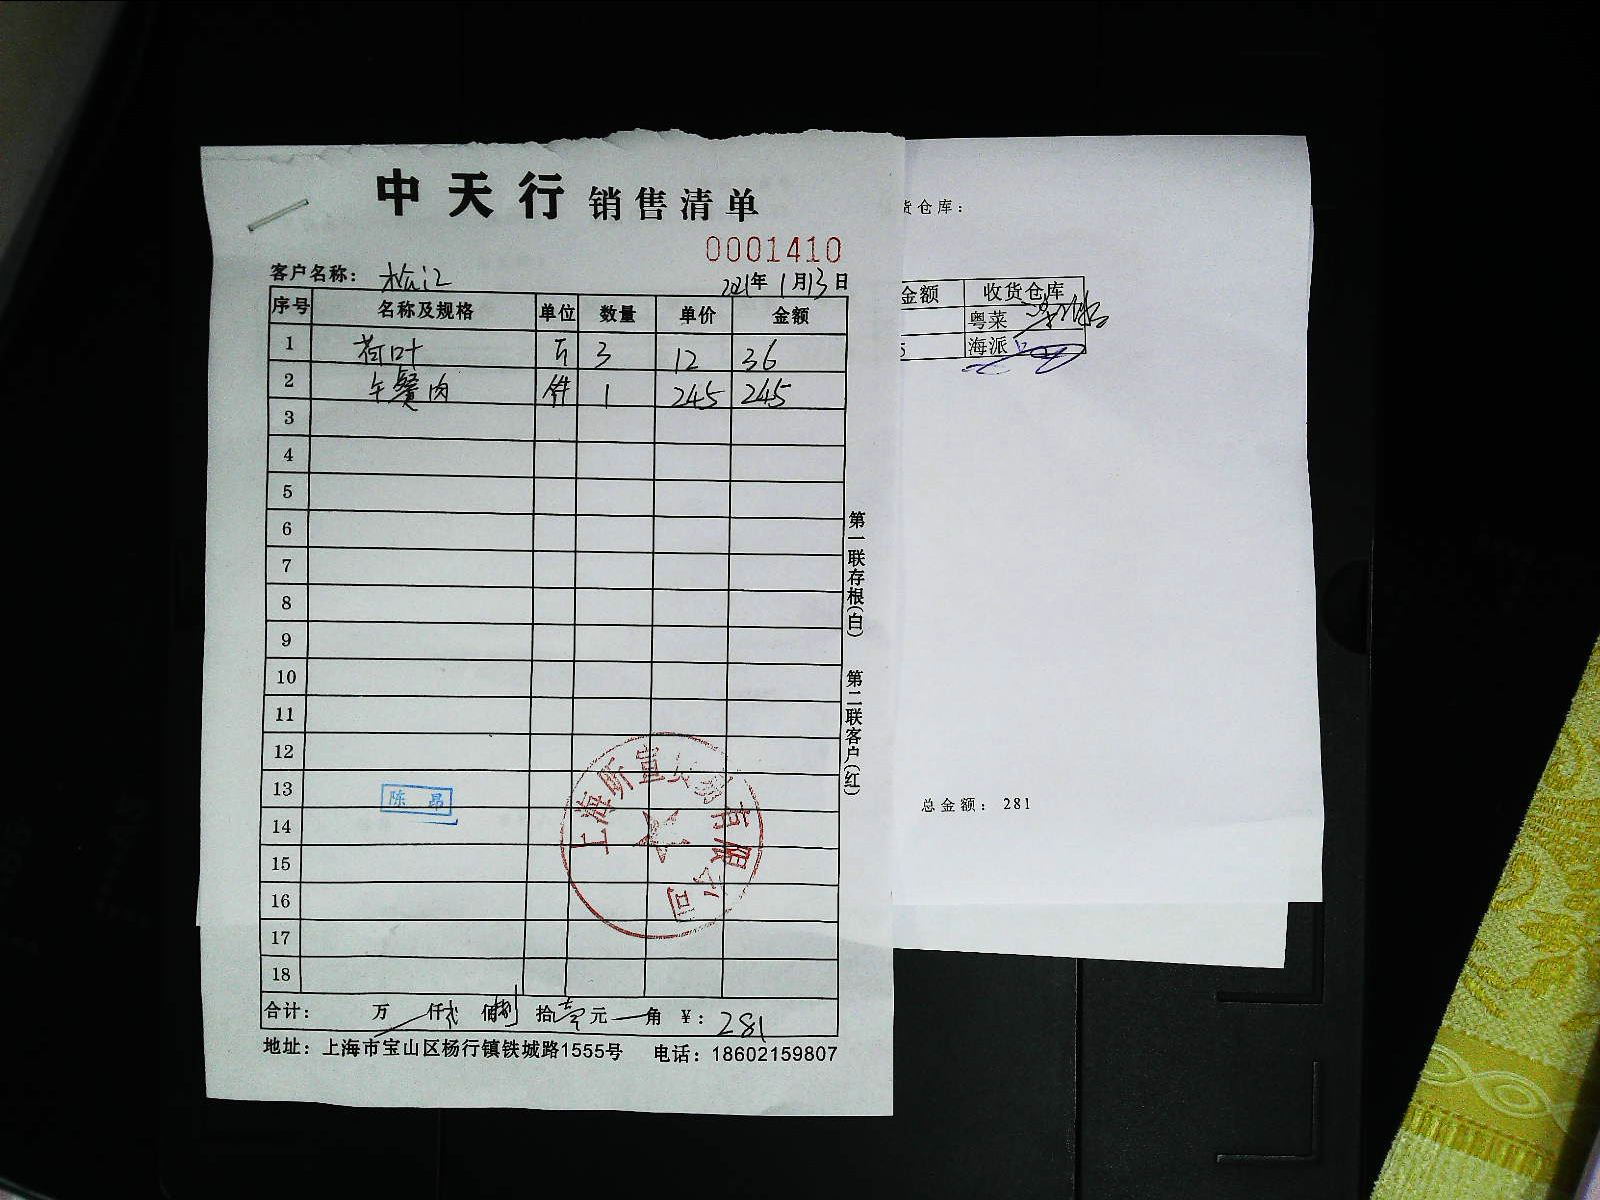 中天行 销售清单
0001410
客户名称: 松江 2021年1月13日
序号 名称及规格 单位 数量 单价 金额
1 荷叶 斤 3 12 36
2 午餐肉 件 1 245 245
3
4
5
6
7
8
9
10
11
12
13
14
15
16
17
18
陈昂
上海昕宣贸易有限公司
合计: 万 仟 贰佰捌拾壹元 角 ¥: 281
地址: 上海市宝山区杨行镇铁城路1555号 电话: 18602159807
第一联存根(白) 第二联客户(红)
货仓库:
金额 收货仓库
粤菜
5 海派
总金额: 281